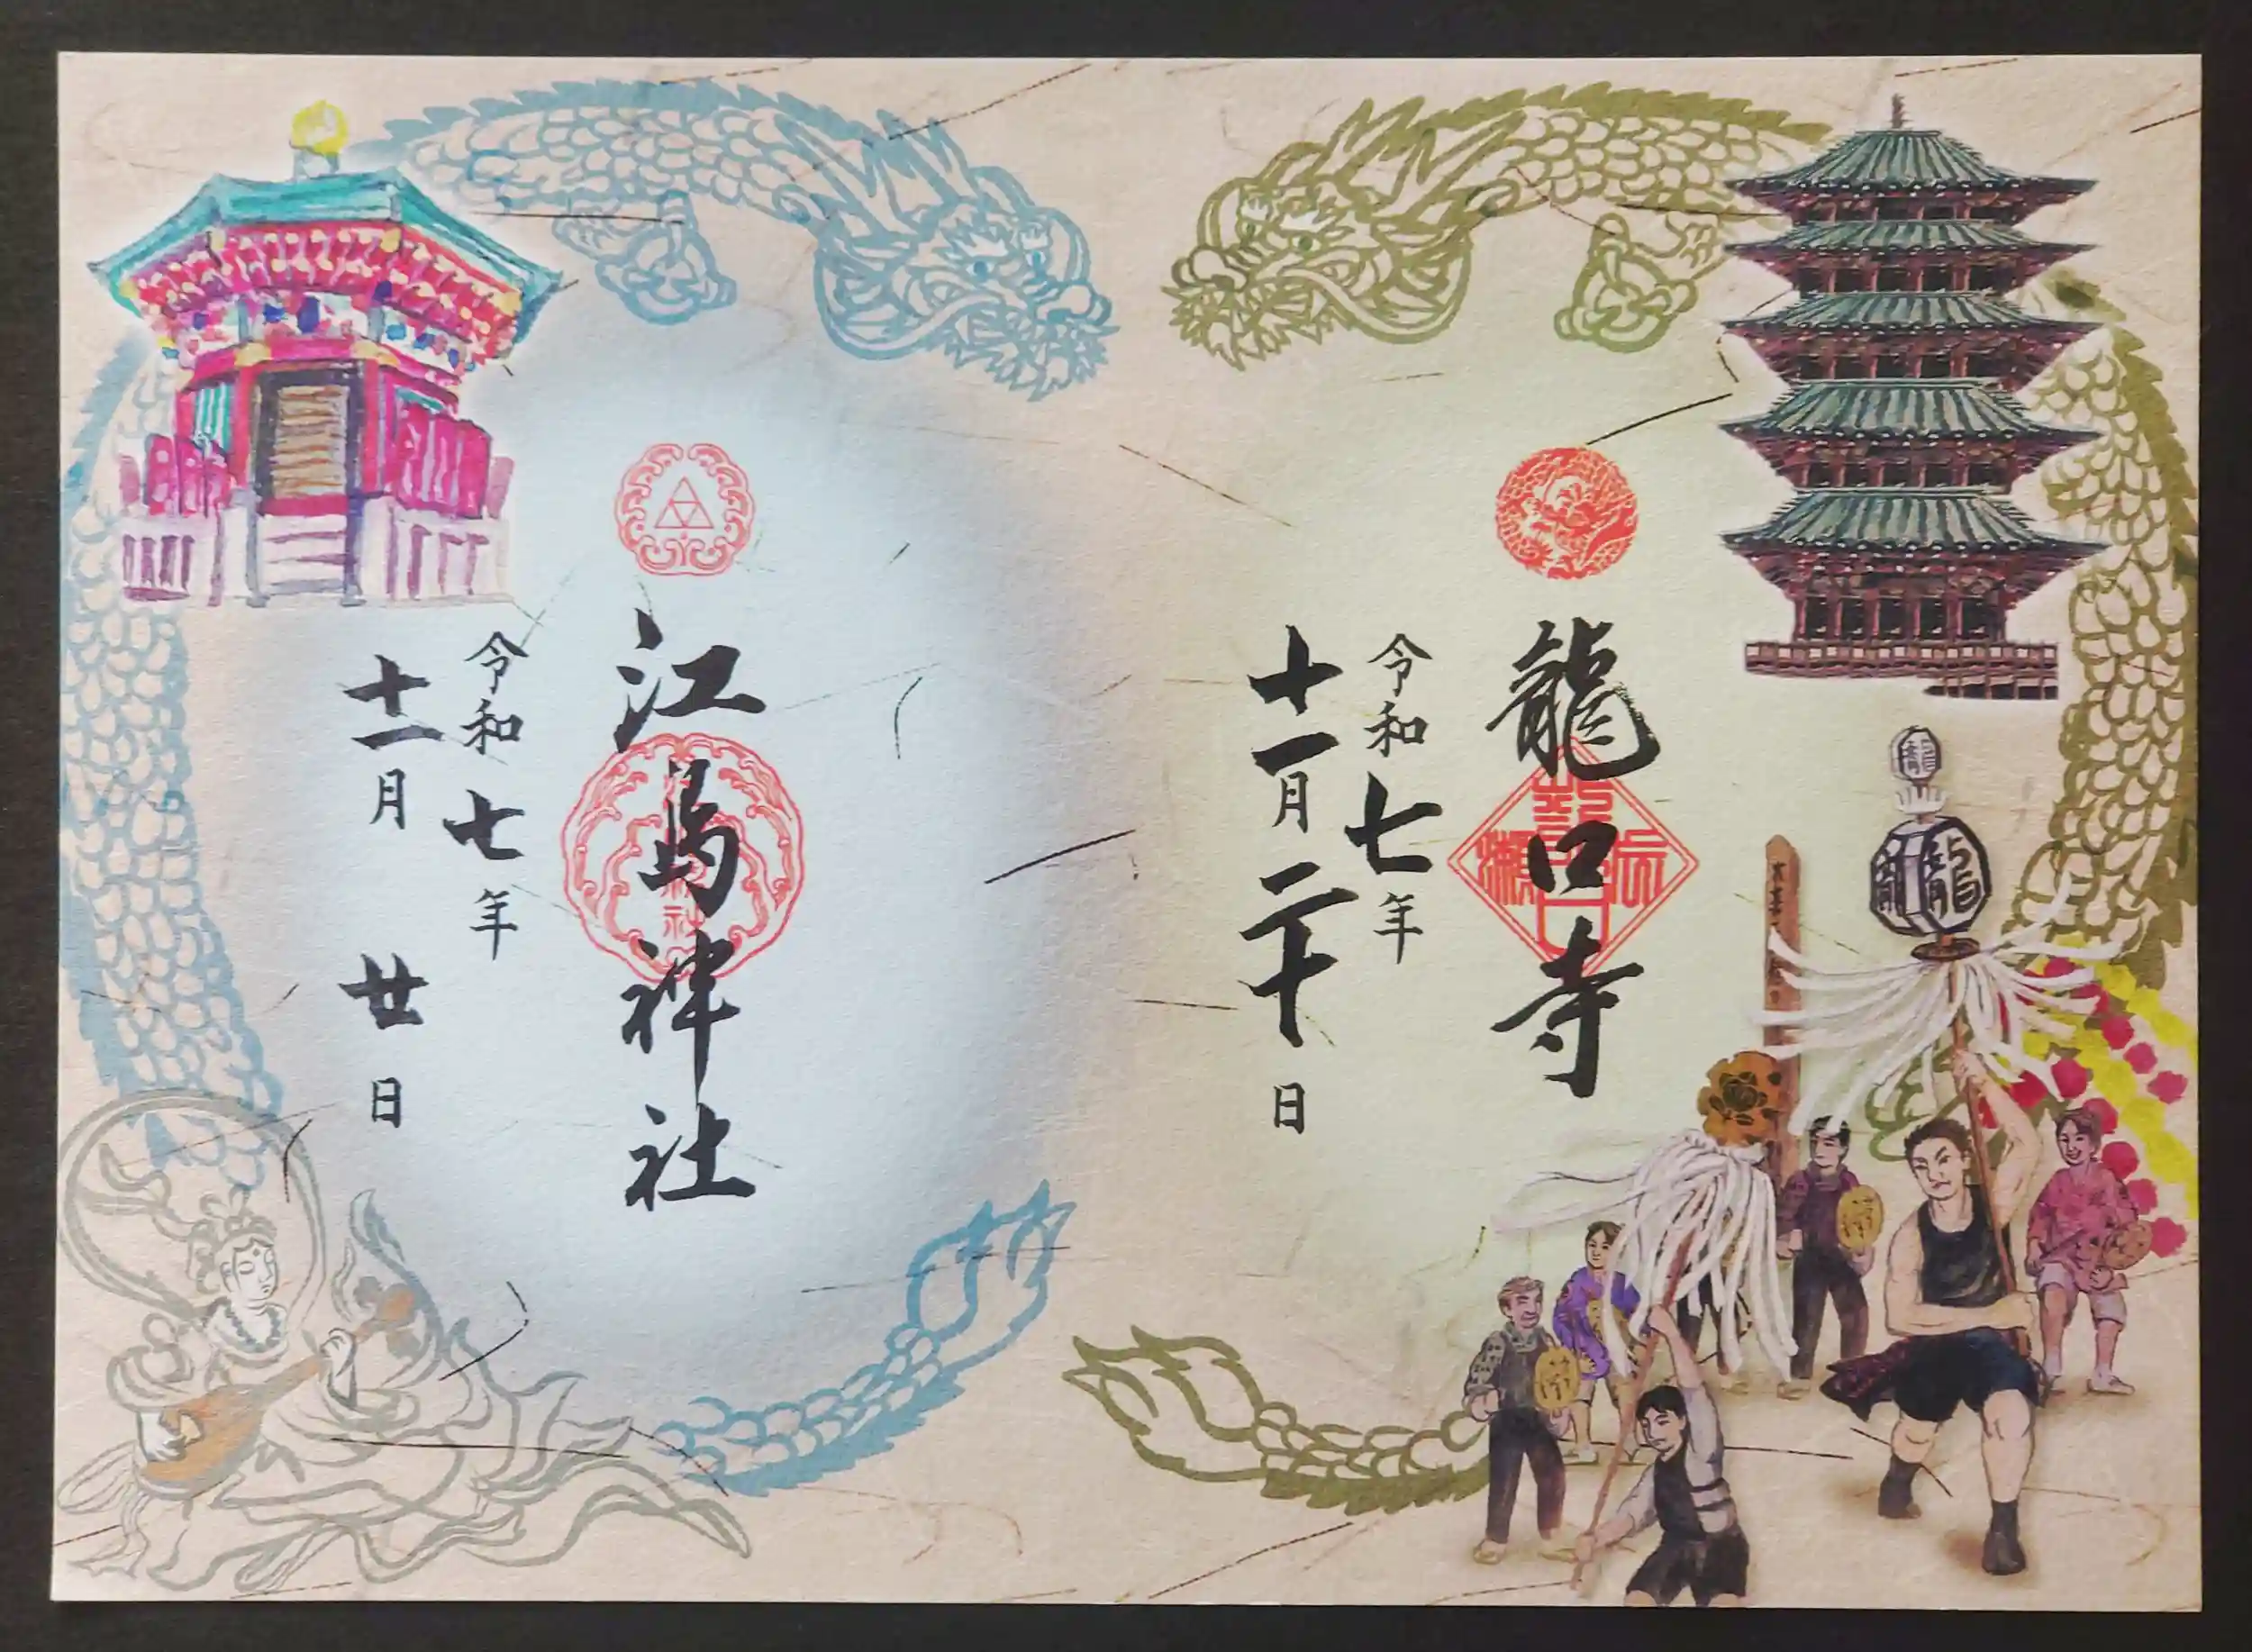 龍口寺
令和七年
十一月二十日
江島神社
令和七年
十一月廿日
龍
龍
龍